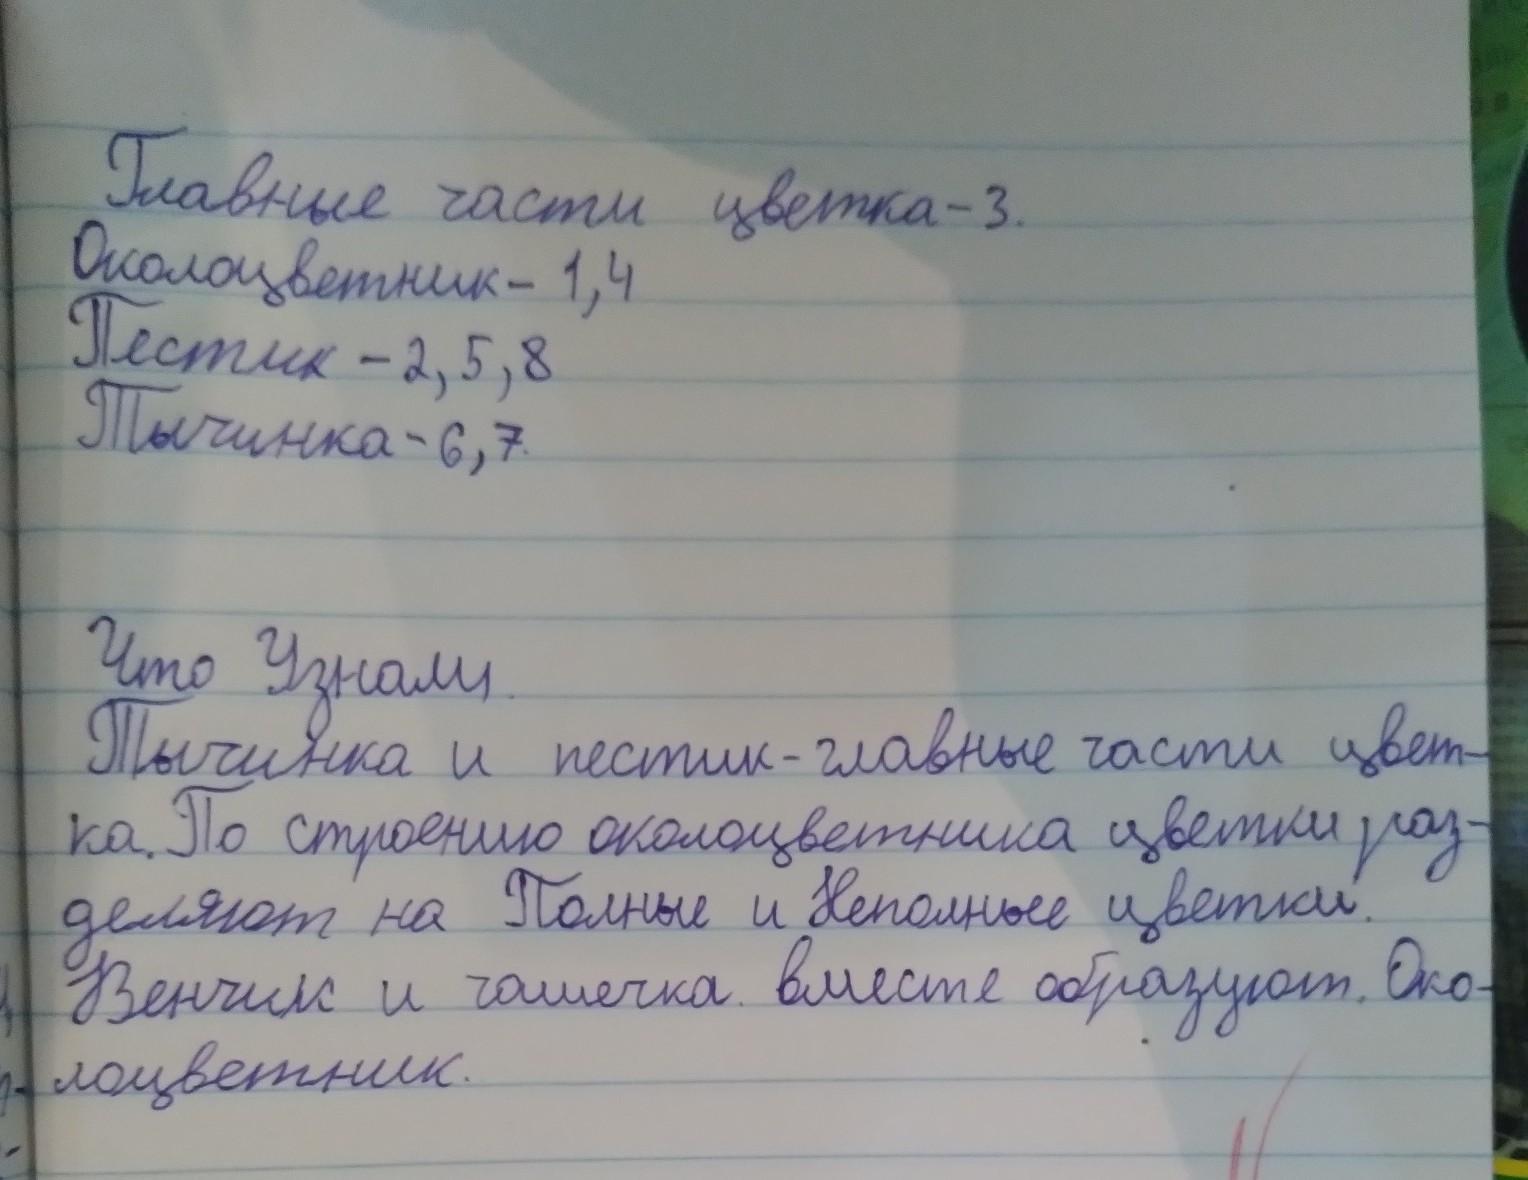 Главные части цветка-3.
Околоцветник- 1,4
Пестик -2,5,8
Тычинка-6,7.
Что Узнали.
Тычинка и пестик-главные части цвет-
ка. По строению околоцветника цветки раз-
деляют на Полные и Неполные цветки.
Венчик и чашечка вместе образуют. Око-
лоцветник.